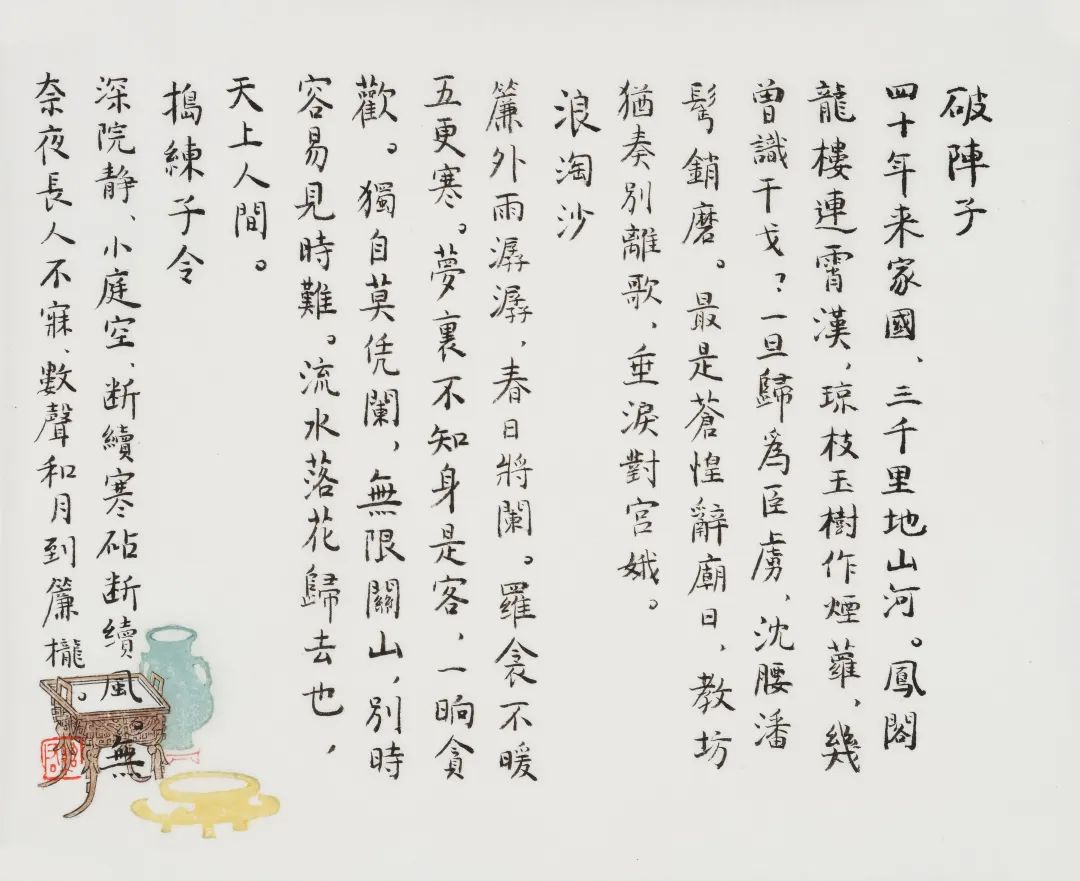 破陣子
四十年来家國、三千里地山河。鳳閣
龍樓連霄漢，琼枝玉樹作煙蘿，幾
曾識干戈？一旦歸為臣虜，沈腰潘
髩銷磨。最是蒼惶辭廟日，教坊
猶奏別離歌，垂淚對宮娥。
浪淘沙
簾外雨潺潺，春日將闌。羅衾不暖
五更寒。夢裏不知身是客，一晌貪
歡。獨自莫凭闌，無限關山，別時
容易見時難。流水落花歸去也，
天上人間。
搗練子令
深院静、小庭空、断續寒砧断續風。無
奈夜長人不寐、數聲和月到簾櫳。